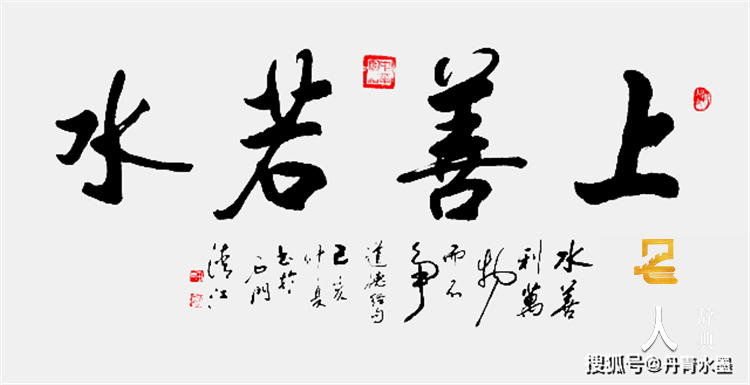 上善若水
水善
利萬
物
而不
争
道德经句
己亥
仲夏
书於
石門
人
辞典
搜狐号@丹青水墨